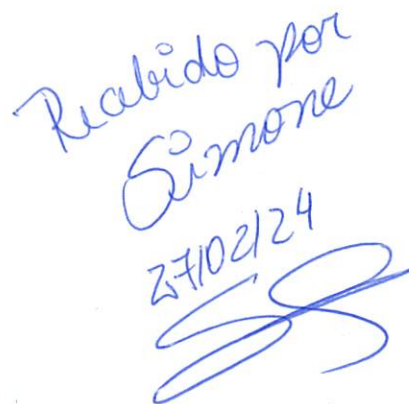 Recebido por
Simone
27/02/24